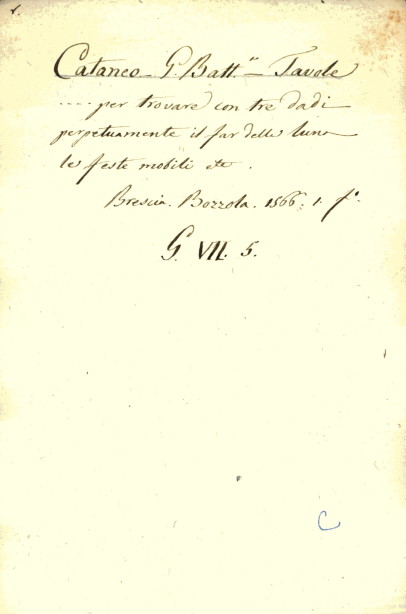 Cataneo G. Batt.ª — Tavole
.... per trovare con tre dadi
perpetuamente il far della luna
le feste mobili etc.
Brescia. Bozzola. 1566. 1. f.º
G. VII. 5.
C